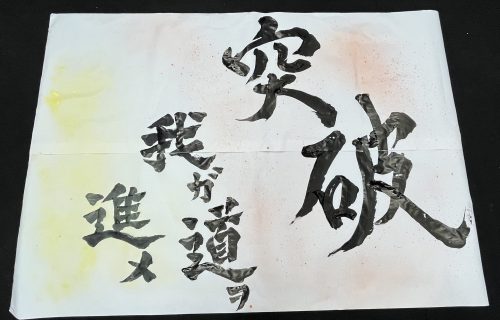 突破
我が道ヲ
進メ